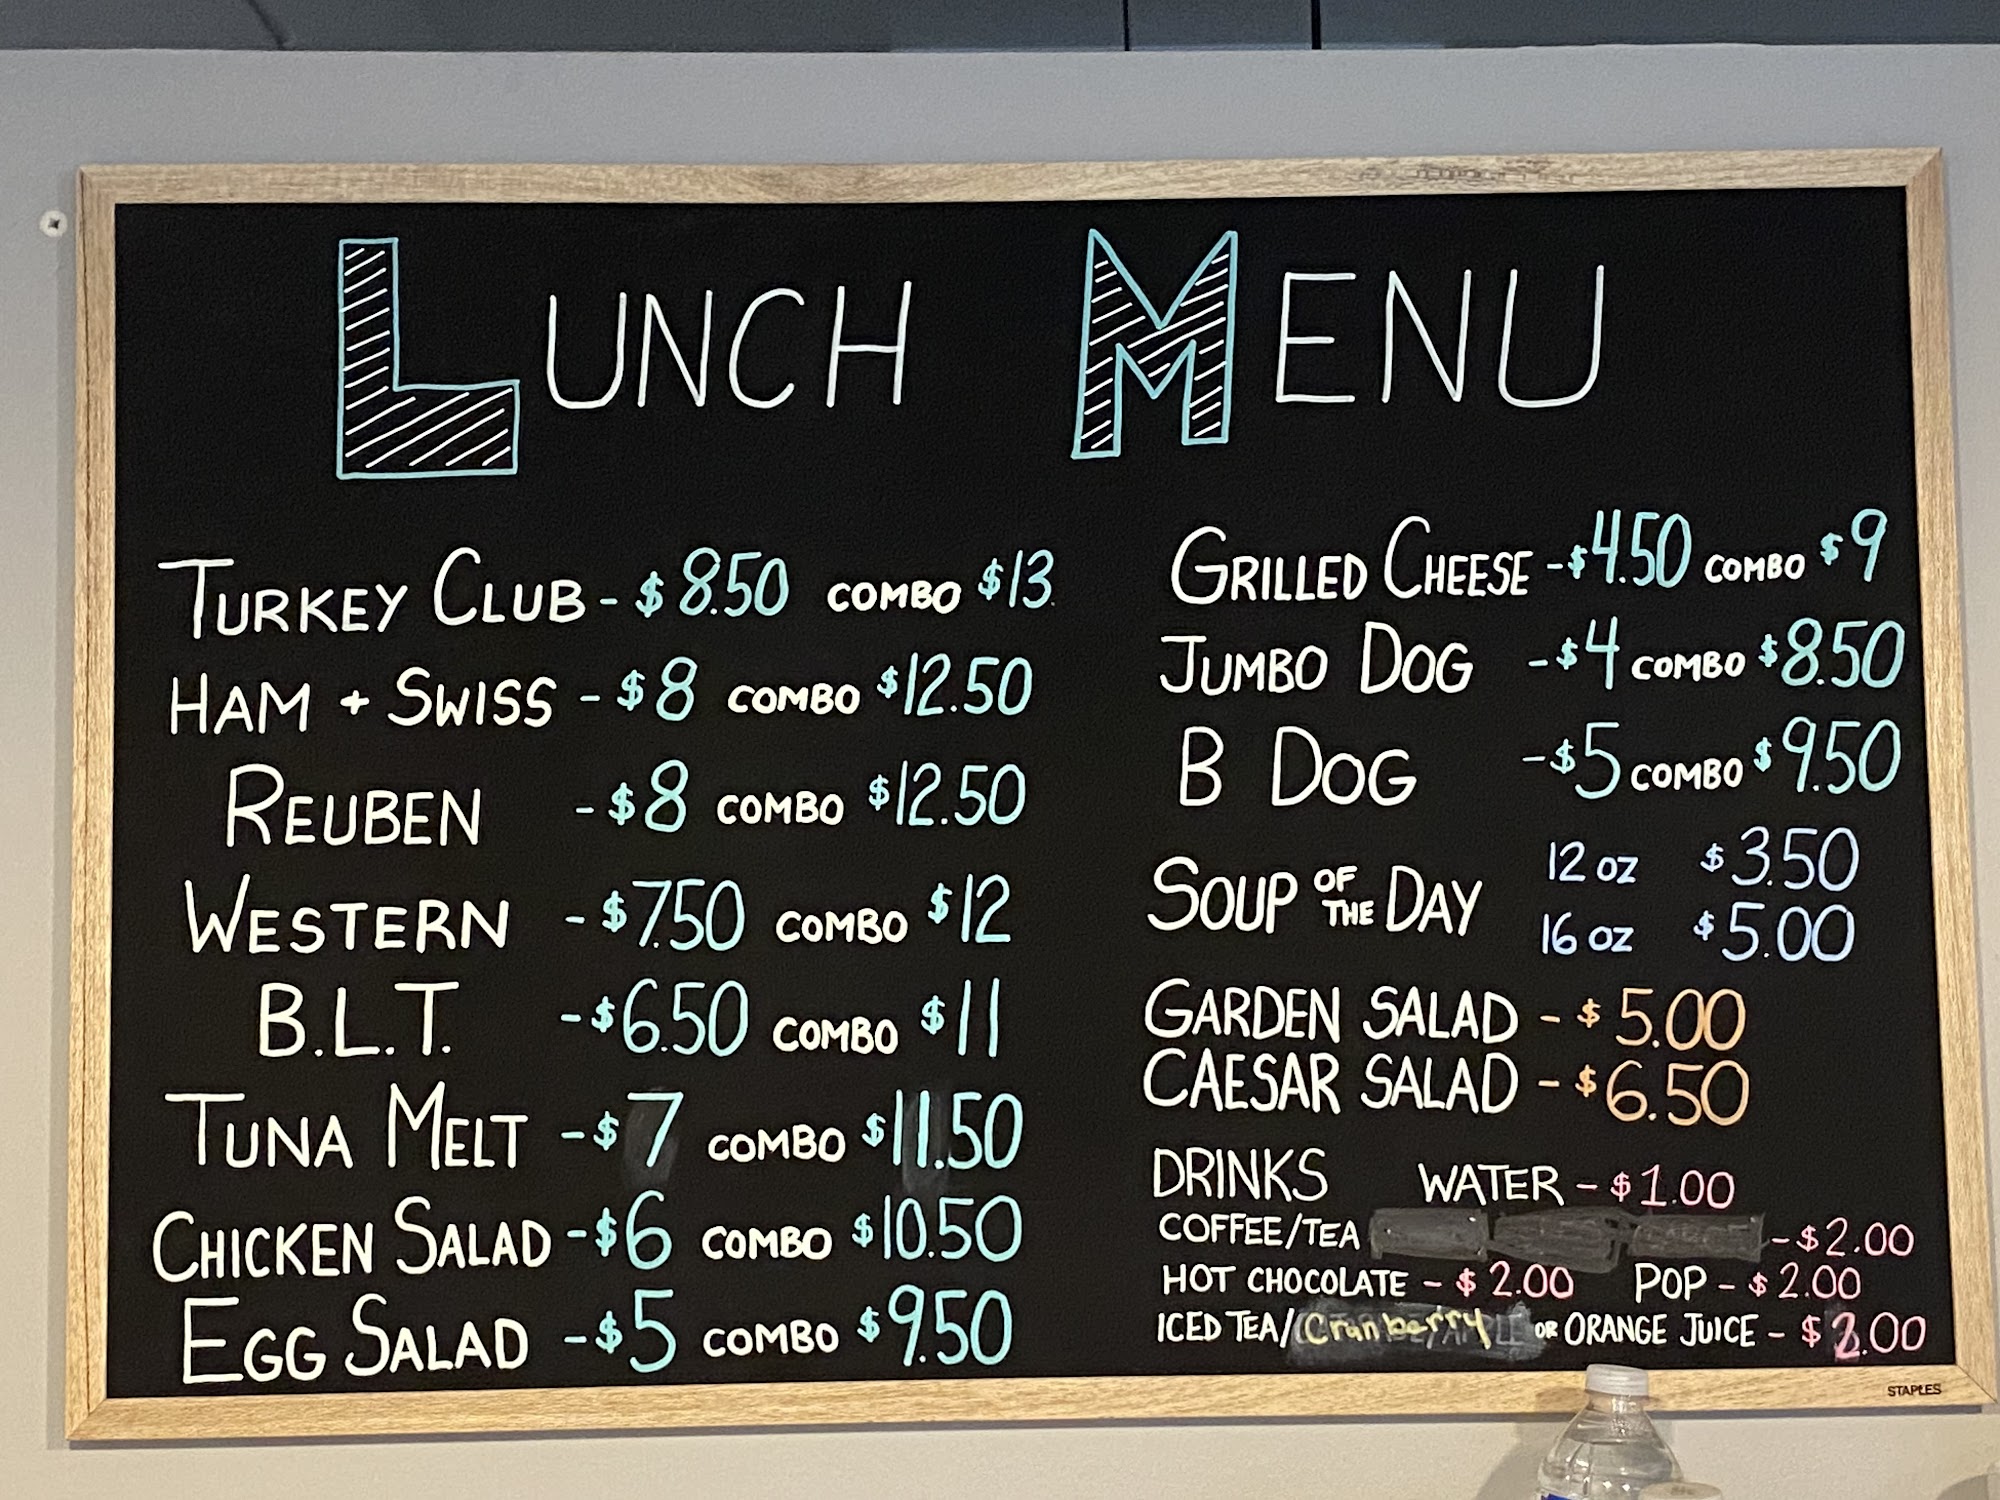 LUNCH MENU
TURKEY CLUB - $8.50 COMBO $13
HAM + SWISS - $8 COMBO $12.50
REUBEN - $8 COMBO $12.50
WESTERN - $7.50 COMBO $12
B.L.T. - $6.50 COMBO $11
TUNA MELT - $7 COMBO $11.50
CHICKEN SALAD - $6 COMBO $10.50
EGG SALAD - $5 COMBO $9.50
GRILLED CHEESE - $4.50 COMBO $9
JUMBO DOG - $4 COMBO $8.50
B DOG - $5 COMBO $9.50
SOUP OF THE DAY 12 OZ $3.50
16 OZ $5.00
GARDEN SALAD - $5.00
CAESAR SALAD - $6.50
DRINKS WATER - $1.00
COFFEE/TEA - $2.00
HOT CHOCOLATE - $2.00 POP - $2.00
ICED TEA/Cranberry OR ORANGE JUICE - $2.00
STAPLES